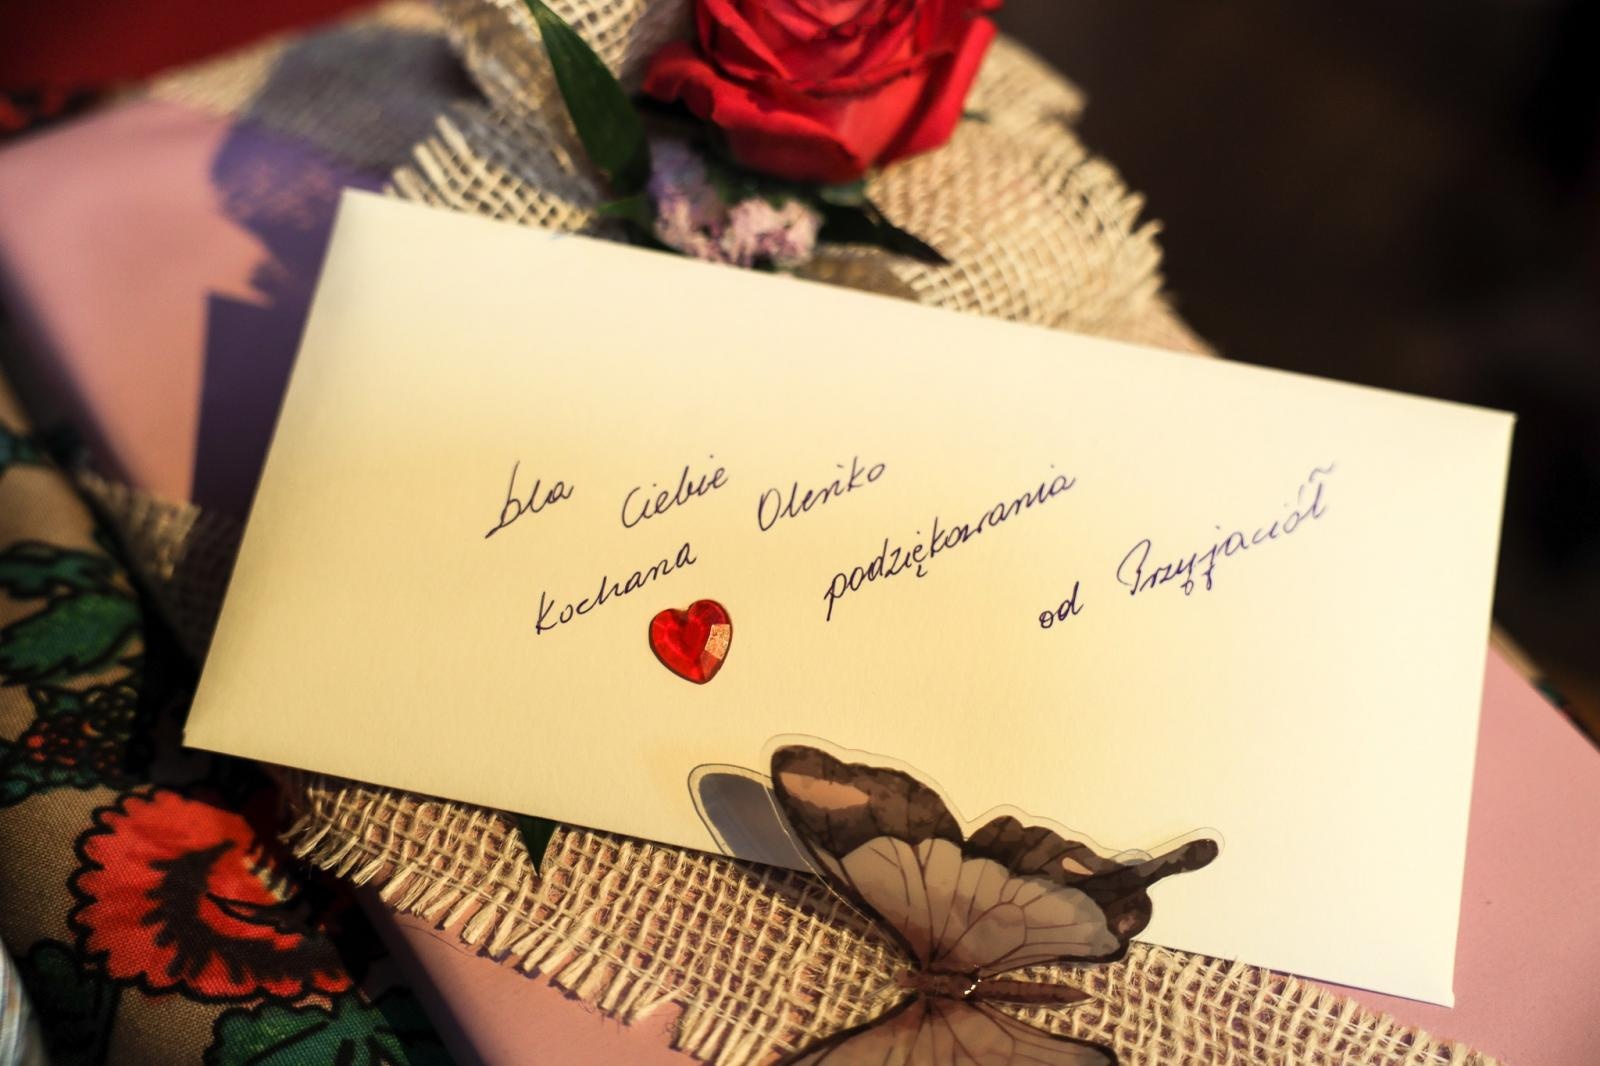 Dla Ciebie Oleńko
kochana podziękowania
od Przyjaciół